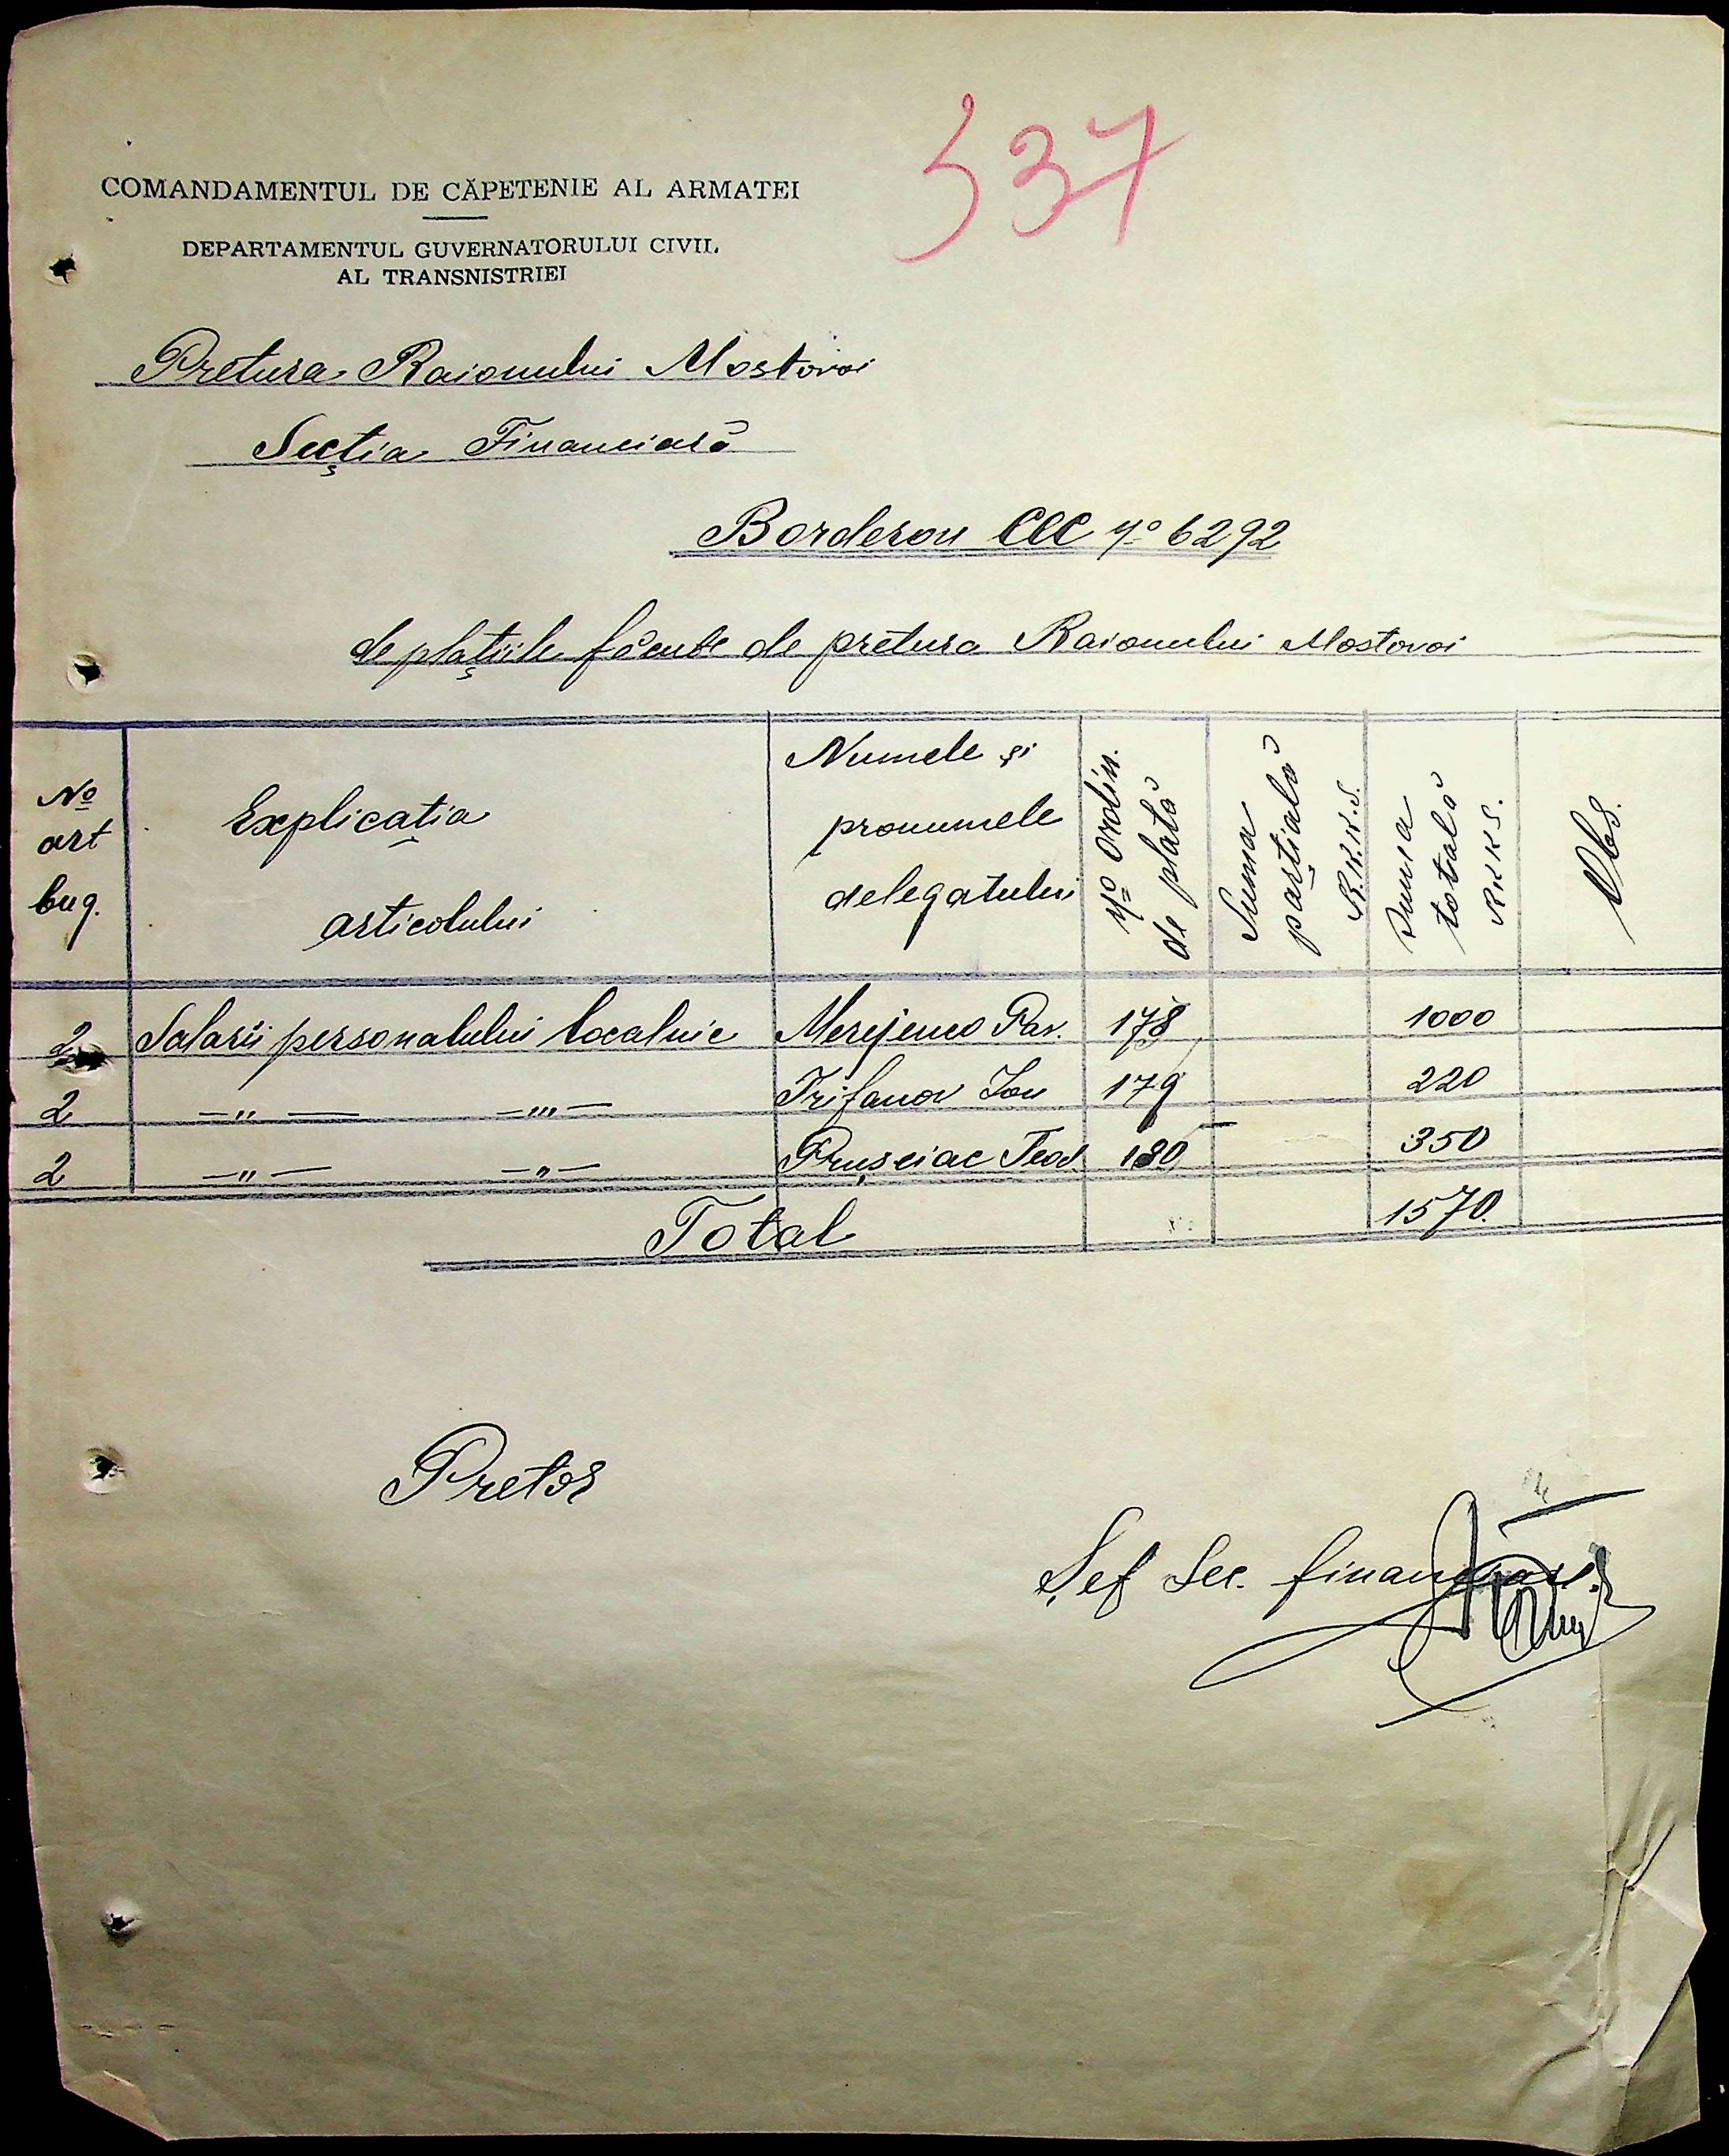 337
COMANDAMENTUL DE CĂPETENIE AL ARMATEI
DEPARTAMENTUL GUVERNATORULUI CIVIL
AL TRANSNISTRIEI
Pretura Raionului Mostovoi
Secția Financiară
Borderou CEC No 6292
de plațiile făcute de pretura Raionului Mostovoi
No art bug. Explicația articolului Numele și pronumele delegatului No ordin. de plată Suma parțială R.K.K.S. Suma totală RKKS. Obs.
2 Salarii personalului localnic Merejenco Pav. 178 1000
2 —„— —„— Trifanov Ion 179 220
2 —„— —„— Prușciac Teod. 180 350
Total 1570.
Pretor
Șef Sec. financiare.